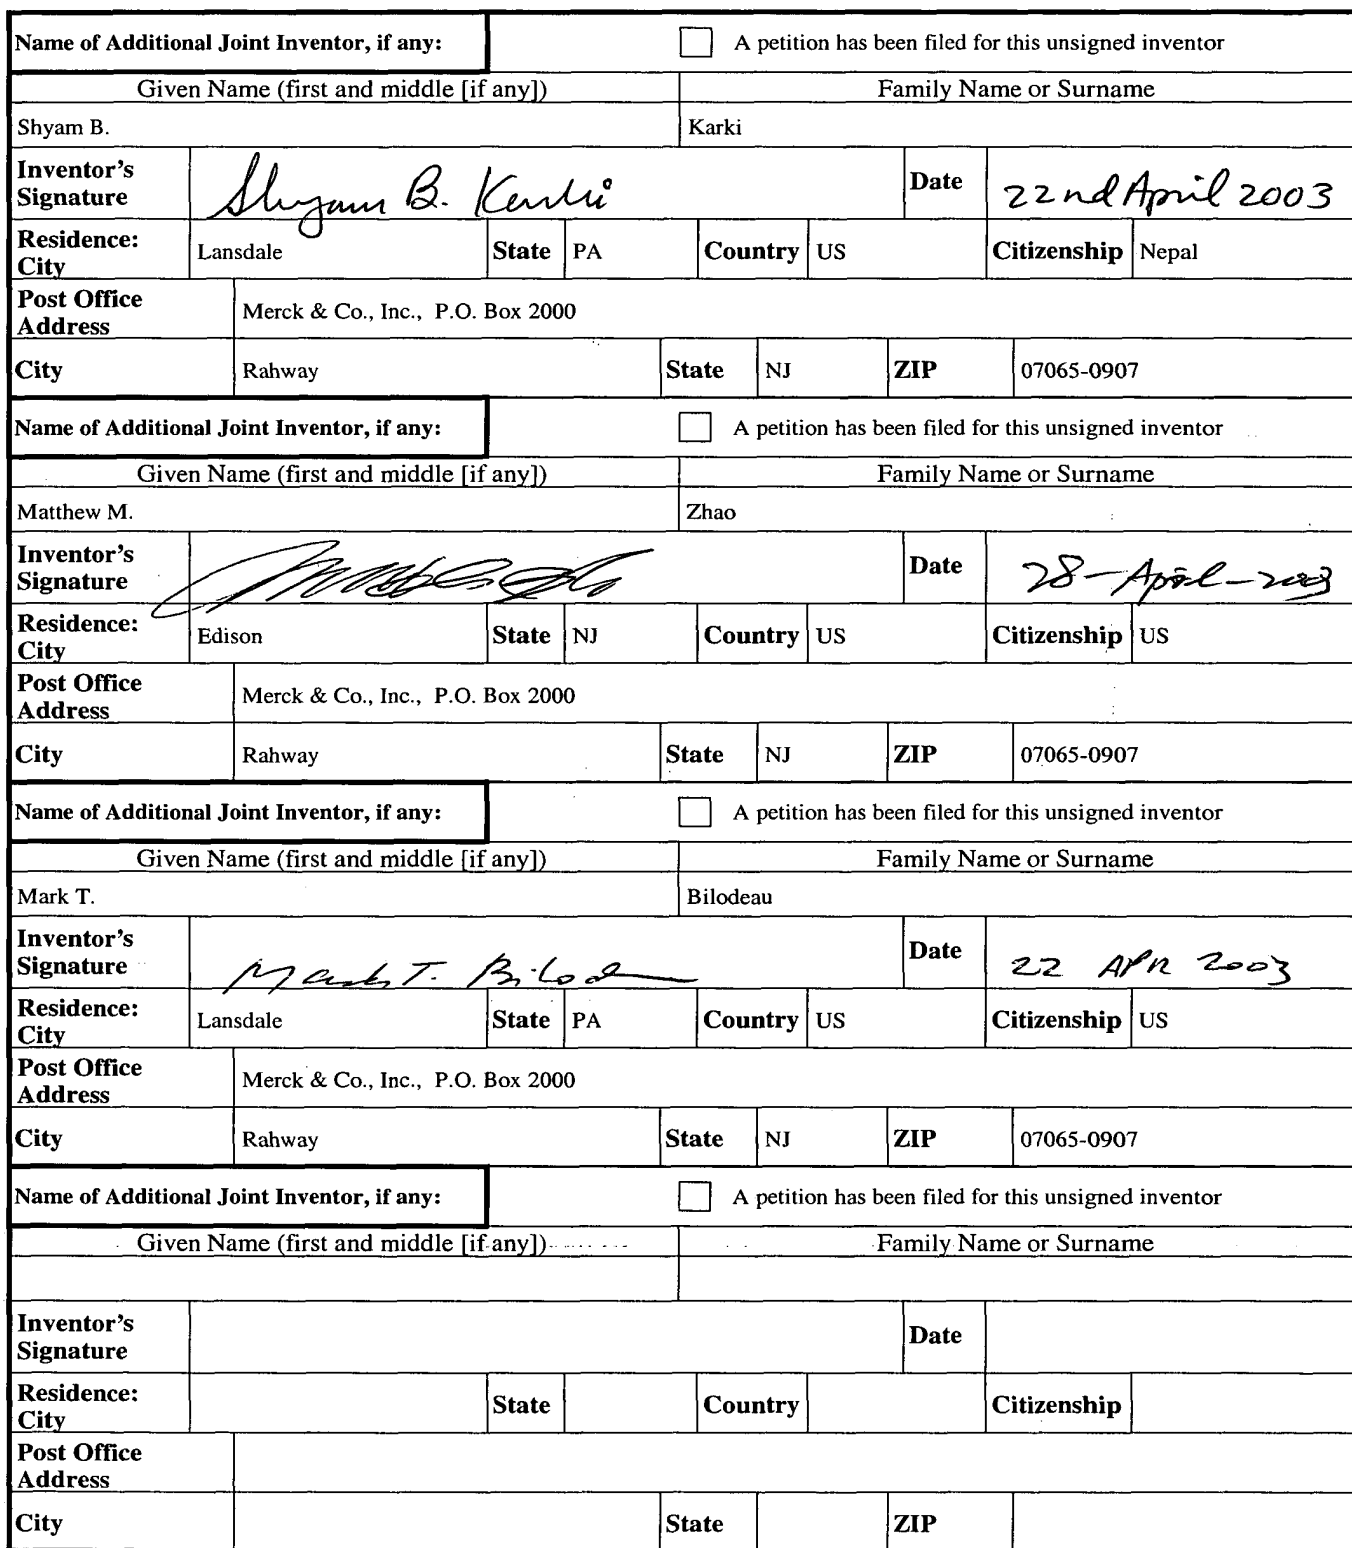 Name of Additional Joint Inventor, if any: A petition has been filed for this unsigned inventor
Given Name (first and middle [if any]) Family Name or Surname
Shyam B. Karki
Inventor's Signature Shyam B. Karki Date 22nd April 2003
Residence: City Lansdale State PA Country US Citizenship Nepal
Post Office Address Merck & Co., Inc., P.O. Box 2000
City Rahway State NJ ZIP 07065-0907
Name of Additional Joint Inventor, if any: A petition has been filed for this unsigned inventor
Given Name (first and middle [if any]) Family Name or Surname
Matthew M. Zhao
Inventor's Signature Date 28-April-2003
Residence: City Edison State NJ Country US Citizenship US
Post Office Address Merck & Co., Inc., P.O. Box 2000
City Rahway State NJ ZIP 07065-0907
Name of Additional Joint Inventor, if any: A petition has been filed for this unsigned inventor
Given Name (first and middle [if any]) Family Name or Surname
Mark T. Bilodeau
Inventor's Signature Mark T. Bilodeau Date 22 APR 2003
Residence: City Lansdale State PA Country US Citizenship US
Post Office Address Merck & Co., Inc., P.O. Box 2000
City Rahway State NJ ZIP 07065-0907
Name of Additional Joint Inventor, if any: A petition has been filed for this unsigned inventor
Given Name (first and middle [if any]) Family Name or Surname
Inventor's Signature Date
Residence: City State Country Citizenship
Post Office Address
City State ZIP